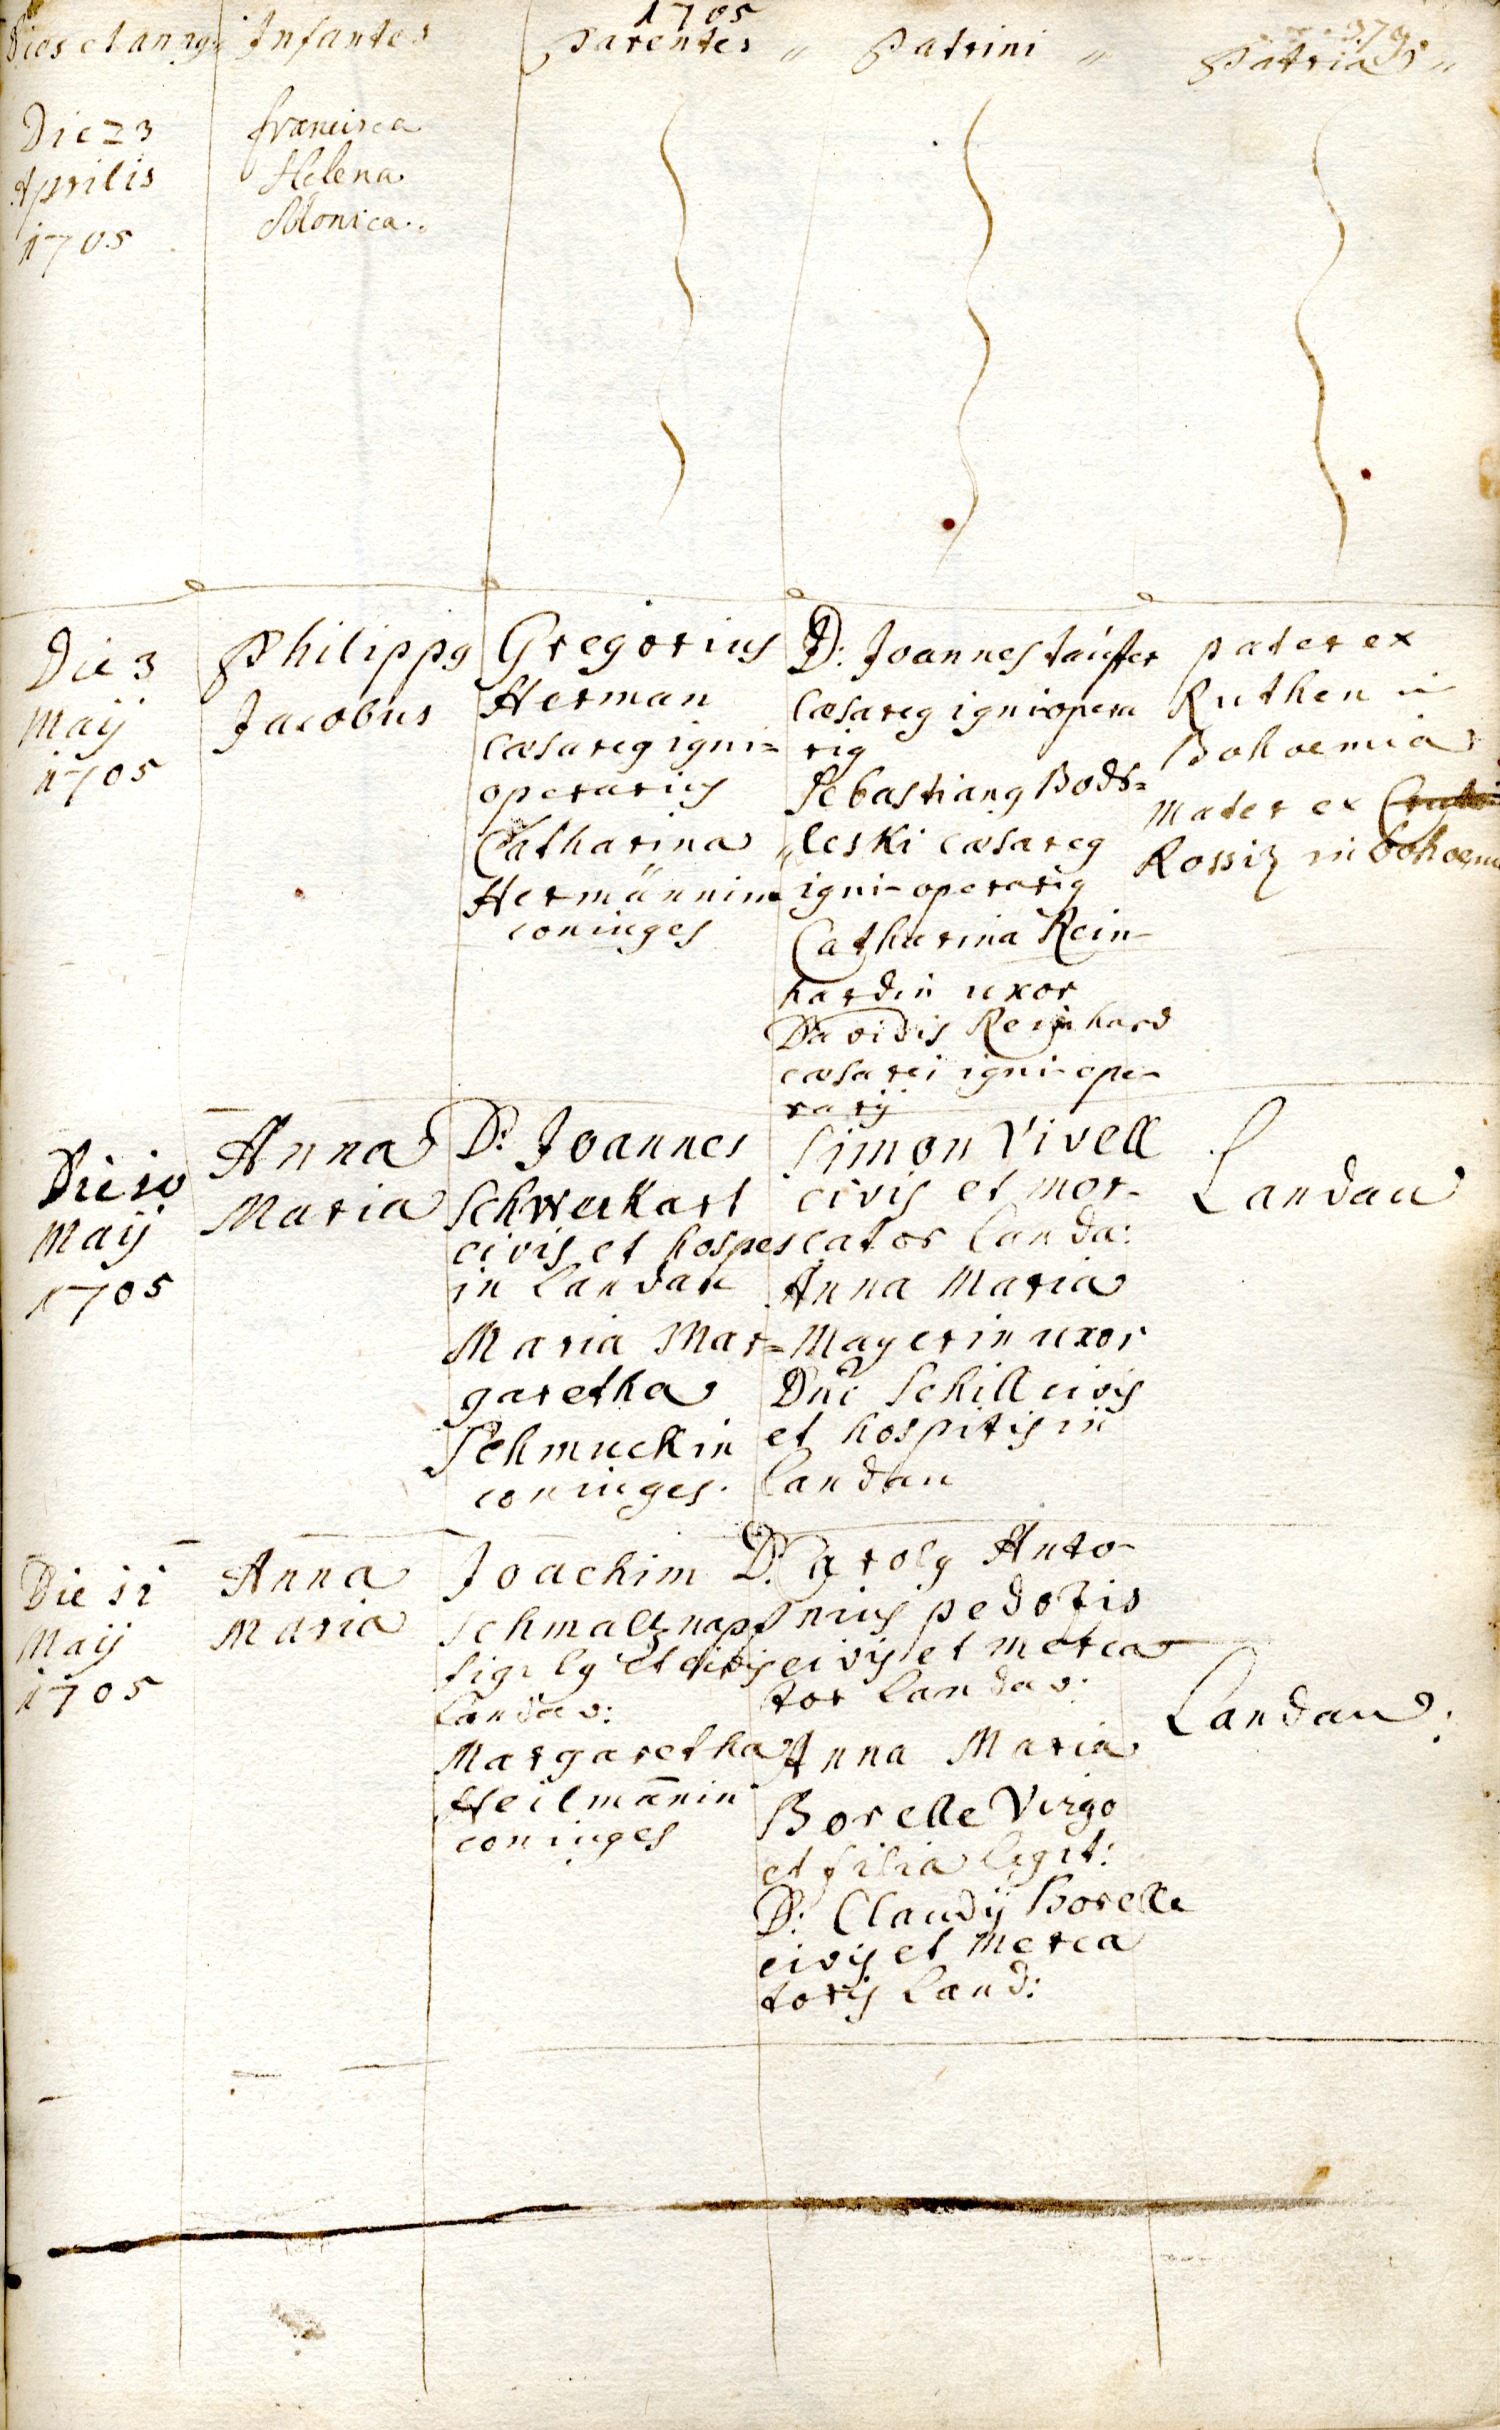 1705
379
Dies et annus Infantes Parentes „ Patrini „ Patria „
Die 23
Aprilis
1705
Francisca
Helena
Monica.
Die 3
Maij
1705
Philippg
Jacobus
Gregorius
Herman
cæsareg igni=
operarius
Catharina
Hermännin
coniuges
D: Joannes taufer
cæsareg igniopera
rig
Sebastiang Bods=
leski cæsareg
igni-operarig
Catharina Rein-
hardin uxor
Davidis Reinhard
cæsarei igni-ope-
rarij
pater ex
Ruthen in
Bohoemia
Mater ex
Rossiz in bohoem
Die 10
Maij
1705
Anna
Maria
D: Joannes
Schweckart
civis et hospes
in landau
Maria Mar=
garetha
Schmuckin
coniuges.
Simon Vivell
civis et mer-
cator landa:
Anna Maria
Mayerin uxor
Dni Schill civis
et hospitis in
landau
Landau
Die 11
Maij
1705
Anna
Maria
Joachim
Schmaltznapf
figulg et civis
landav:
Margaretha
Heilmānin
coniuges
D. Carolg Anto-
nius pedozis
civis et merca
tor landav:
Anna Maria
Borelle Virgo
et filia legit:
D: Claudij Borelle
civis et merca
toris land:
Landau: